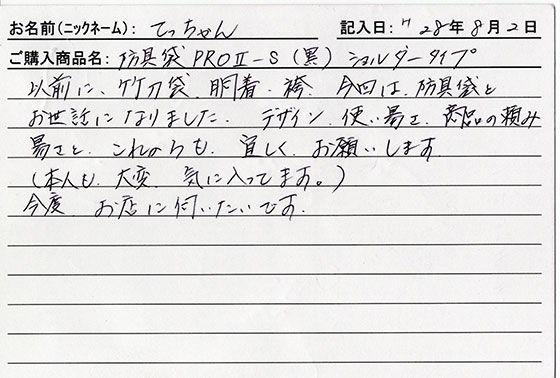 お名前(ニックネーム): てっちゃん 記入日: H28年8月2日
ご購入商品名: 防具袋PROⅡ-S(黒)ショルダータイプ
以前に、竹刀袋、胴着、袴、今回は、防具袋と
お世話になりました。デザイン、使い易さ、商品の頼み
易さと、これからも、宜しく、お願いします
(本人も、大変、気に入ってます。)
今度、お店に伺いたいです。